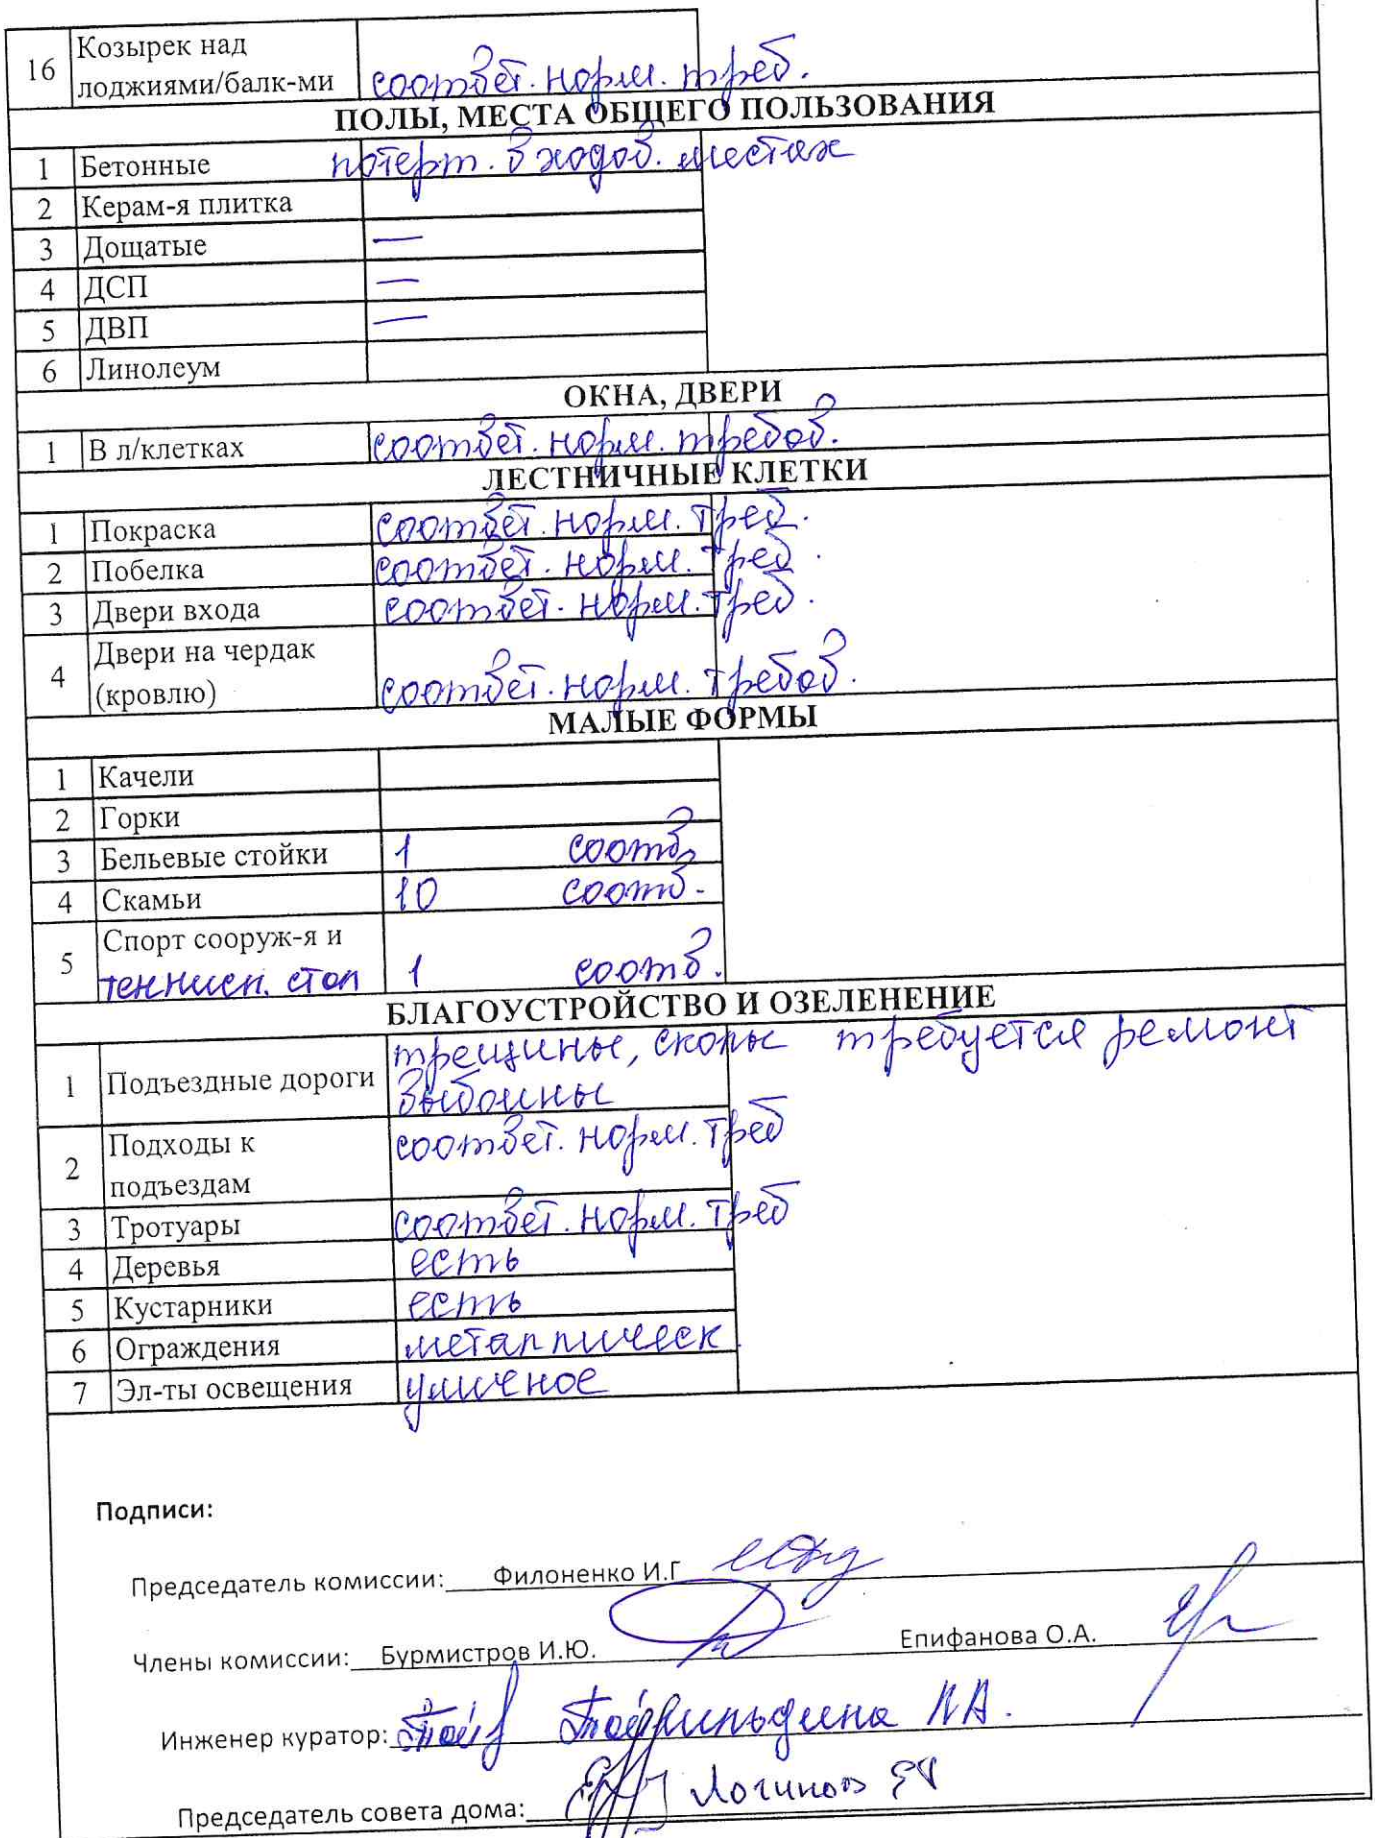 16 Козырек над
лоджиями/балк-ми соответ. норм. треб.
ПОЛЫ, МЕСТА ОБЩЕГО ПОЛЬЗОВАНИЯ
1 Бетонные потерт. в ходов. местах
2 Керам-я плитка
3 Дощатые —
4 ДСП —
5 ДВП —
6 Линолеум
ОКНА, ДВЕРИ
1 В л/клетках соответ. норм. требов.
ЛЕСТНИЧНЫЕ КЛЕТКИ
1 Покраска соответ. норм. треб.
2 Побелка соответ. норм. треб.
3 Двери входа соответ. норм. треб.
4 Двери на чердак
(кровлю) соответ. норм. требов.
МАЛЫЕ ФОРМЫ
1 Качели
2 Горки
3 Бельевые стойки 1 соотв.
4 Скамьи 10 соотв.
5 Спорт сооруж-я и
теннисн. стол 1 соотв.
БЛАГОУСТРОЙСТВО И ОЗЕЛЕНЕНИЕ
1 Подъездные дороги трещины, сколы требуется ремонт
выбоины
2 Подходы к соответ. норм. треб
подъездам
3 Тротуары соответ. норм. треб
4 Деревья есть
5 Кустарники есть
6 Ограждения металлическ.
7 Эл-ты освещения уличное
Подписи:
Председатель комиссии: Филоненко И.Г
Члены комиссии: Бурмистров И.Ю. Епифанова О.А.
Инженер куратор:
Председатель совета дома: Логинов